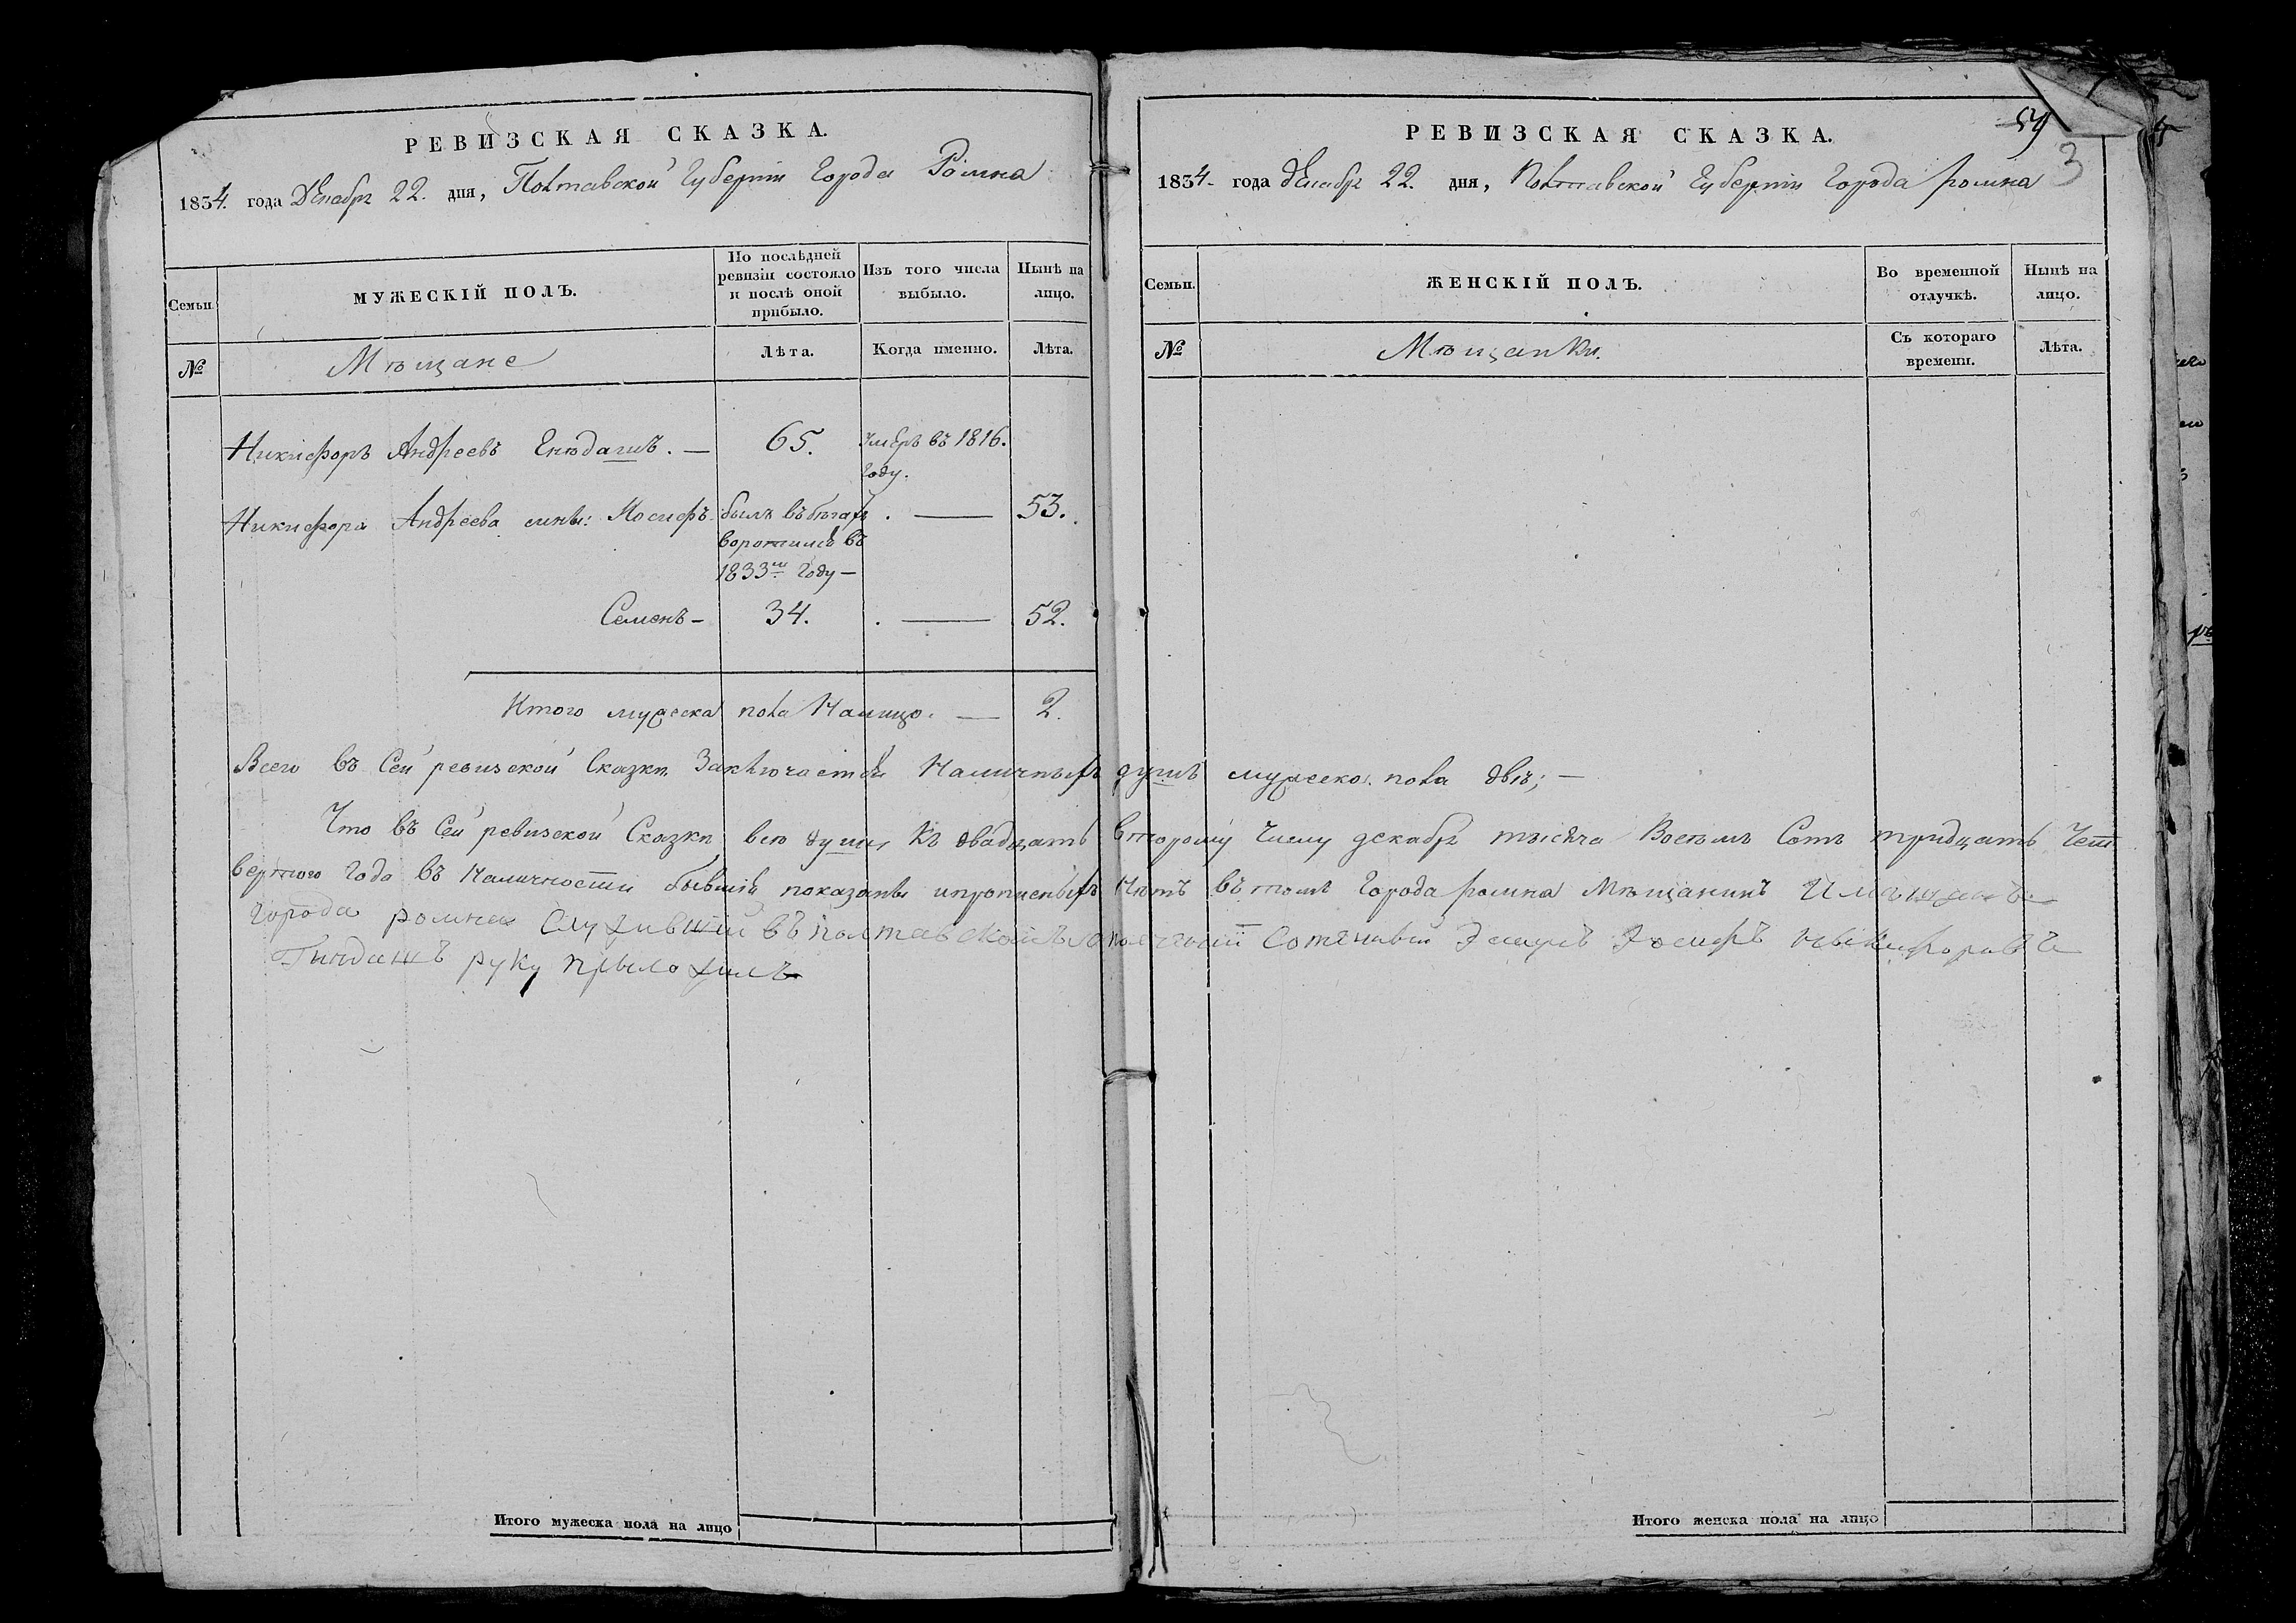 РЕВИЗСКАЯ СКАЗКА.
1834. года Декабря 22. дня, Полтавской Губернiи Города Ромна
Семьи
МУЖЕСКІЙ ПОЛЪ.
По послѣдней ревизіи состояло и послѣ оной прибыло.
Изъ того числа выбыло.
Нынѣ на лицо.
№
Мѣщане
Лѣта.
Когда именно.
Лѣта.
Никифоръ Андреевъ — 65. умеръ въ 1816. году.
Никифора Андреева сыны: Иосифъ былъ въ бѣгахъ . — 53.
воротился въ
1833м году —
Семенъ — 34. . — 52.
Итого мужеска пола Налицо. — 2.
РЕВИЗСКАЯ СКАЗКА.
59
3
1834. года Декабря 22. дня, Полтавской Губернiи Города ромна
Семьи.
ЖЕНСКІЙ ПОЛЪ.
Во временной отлучкѣ.
Нынѣ на лицо.
№
Мѣщанки.
Съ котораго времени.
Лѣта.
Всего въ Сей ревизской Сказки Заключается Наличныхъ душъ мужеска пола двѣ; —
Что въ Сей ревизской Сказки всѣ души Къ двадцать второму Числу декабря тысяча Восемъ Сотъ тридцать Чет
вертого Года въ Наличности бывшiя показаны ипрописныхъ Нѣтъ въ томъ Города ромна Мѣщанинъ
Города ромна Служившiй въ полтавской
руку прыложилъ
Итого мужеска пола на лицо
Итого женска пола на лицо